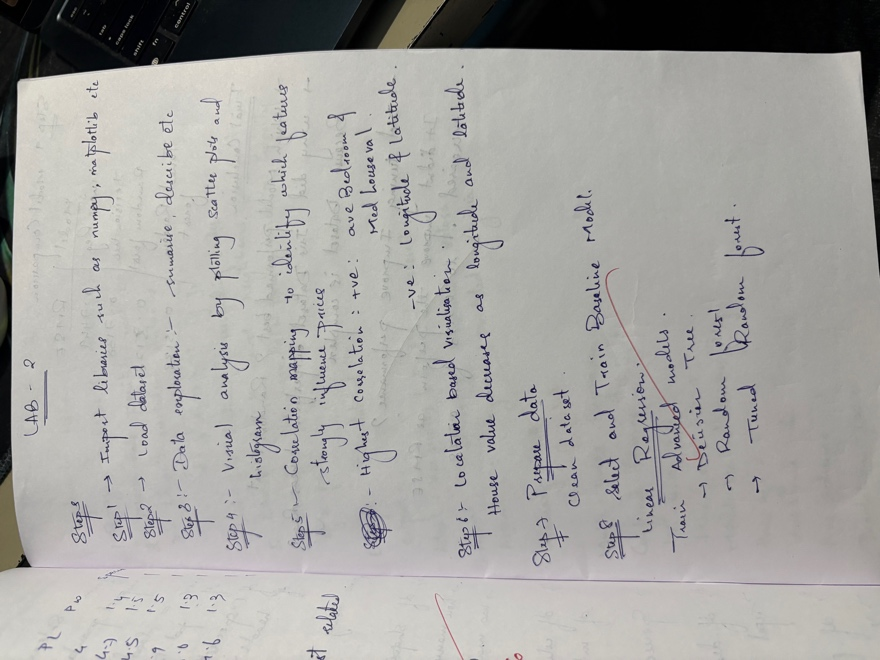 LAB - 2
Steps
Step 1 → Import libraries such as numpy, matplotlib etc
Step 2 → Load dataset
Step 3 :- Data exploration :- sumarise, describe etc
Step 4 :- Visual analysis by plotting scatter plots and
histogram
Step 5 :- Correlation mapping to identify which features
strongly influence prices
:- Highest correlation : +ve : ave Bedroom &
Med house val.
-ve : longitude & latitude.
Step 6 :- Location based visualisation.
House value decreases as longitude and latitude.
Step 7 Prepare data
Clean dataset.
Step 8 Select and Train Baseline Model.
Linear Regression.
Train Advanced models.
→ Decision Tree.
→ Random forest
→ Tuned Random forest.
PL
4
4.7 1.4
4.5 1.5
1.5
1.3
1.3
related
caps lock
shift
fn
control